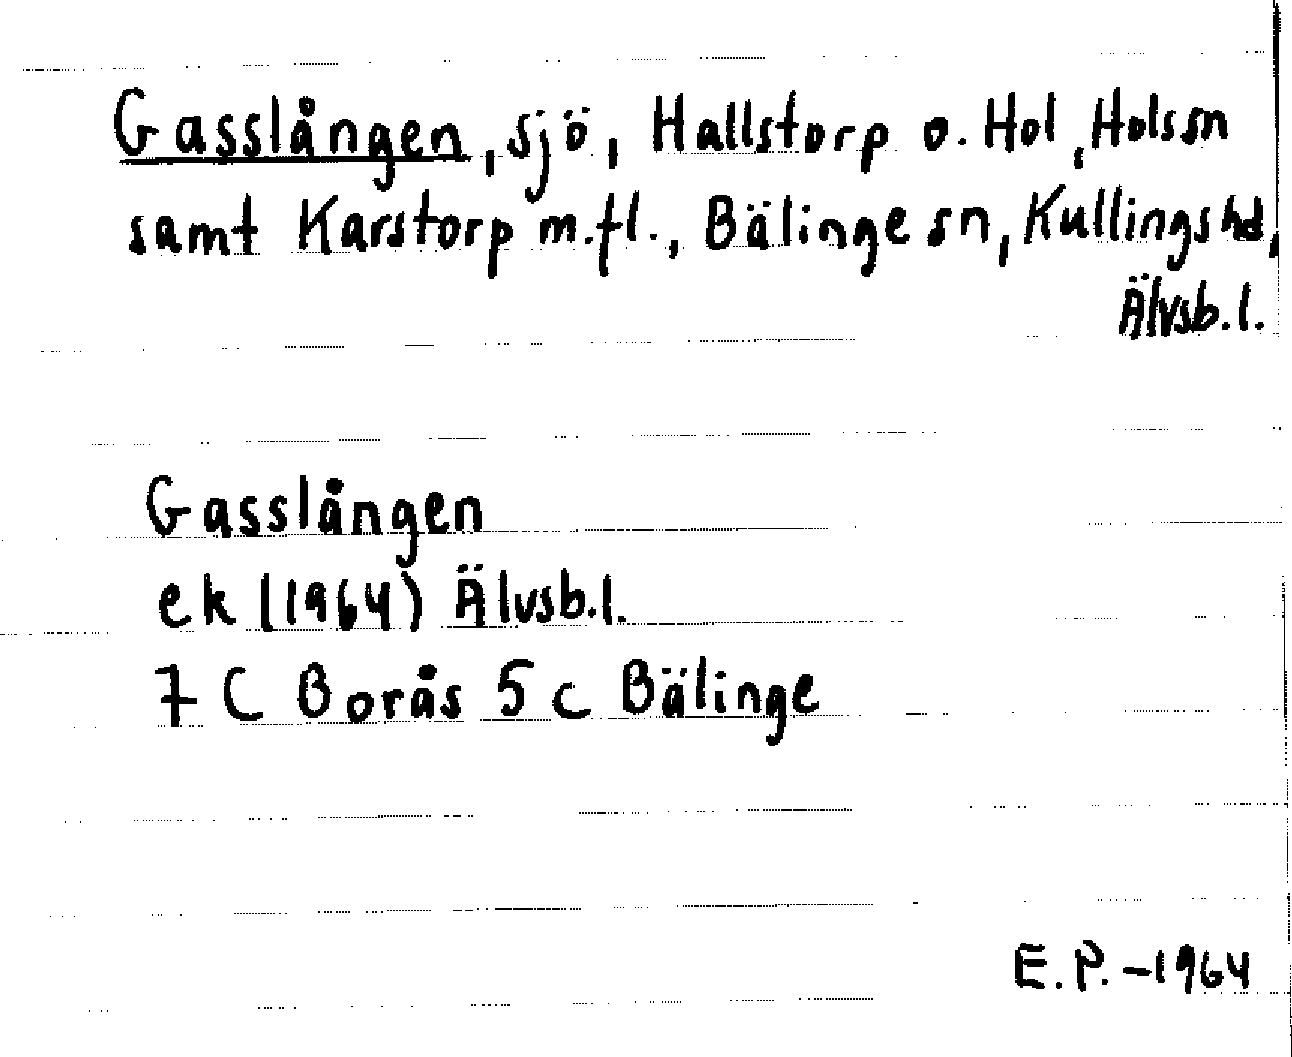 Gasslången, sjö, Hallstorp o. Hol, Hols sn
samt Karstorp m.fl., Bälinge sn, Kullings hd,
Älvsb.l.
Gasslången
ek (1964) Älvsb.l.
7 C Borås 5 c Bälinge
E.P. -1964